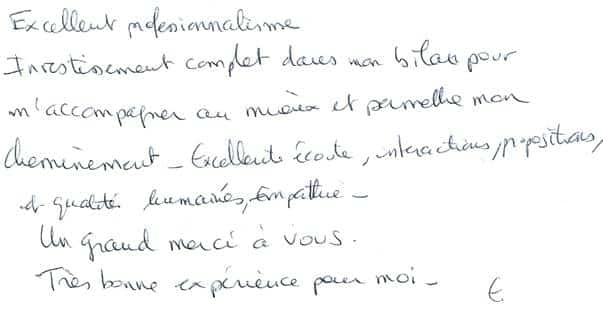 Excellent professionnalisme
Investissement complet dans mon bilan pour
m'accompagner au mieux et permettre mon
cheminement - Excellente écoute, interactions, propositions,
et qualités humaines, empathie -
Un grand merci à vous.
Très bonne expérience pour moi -
E.